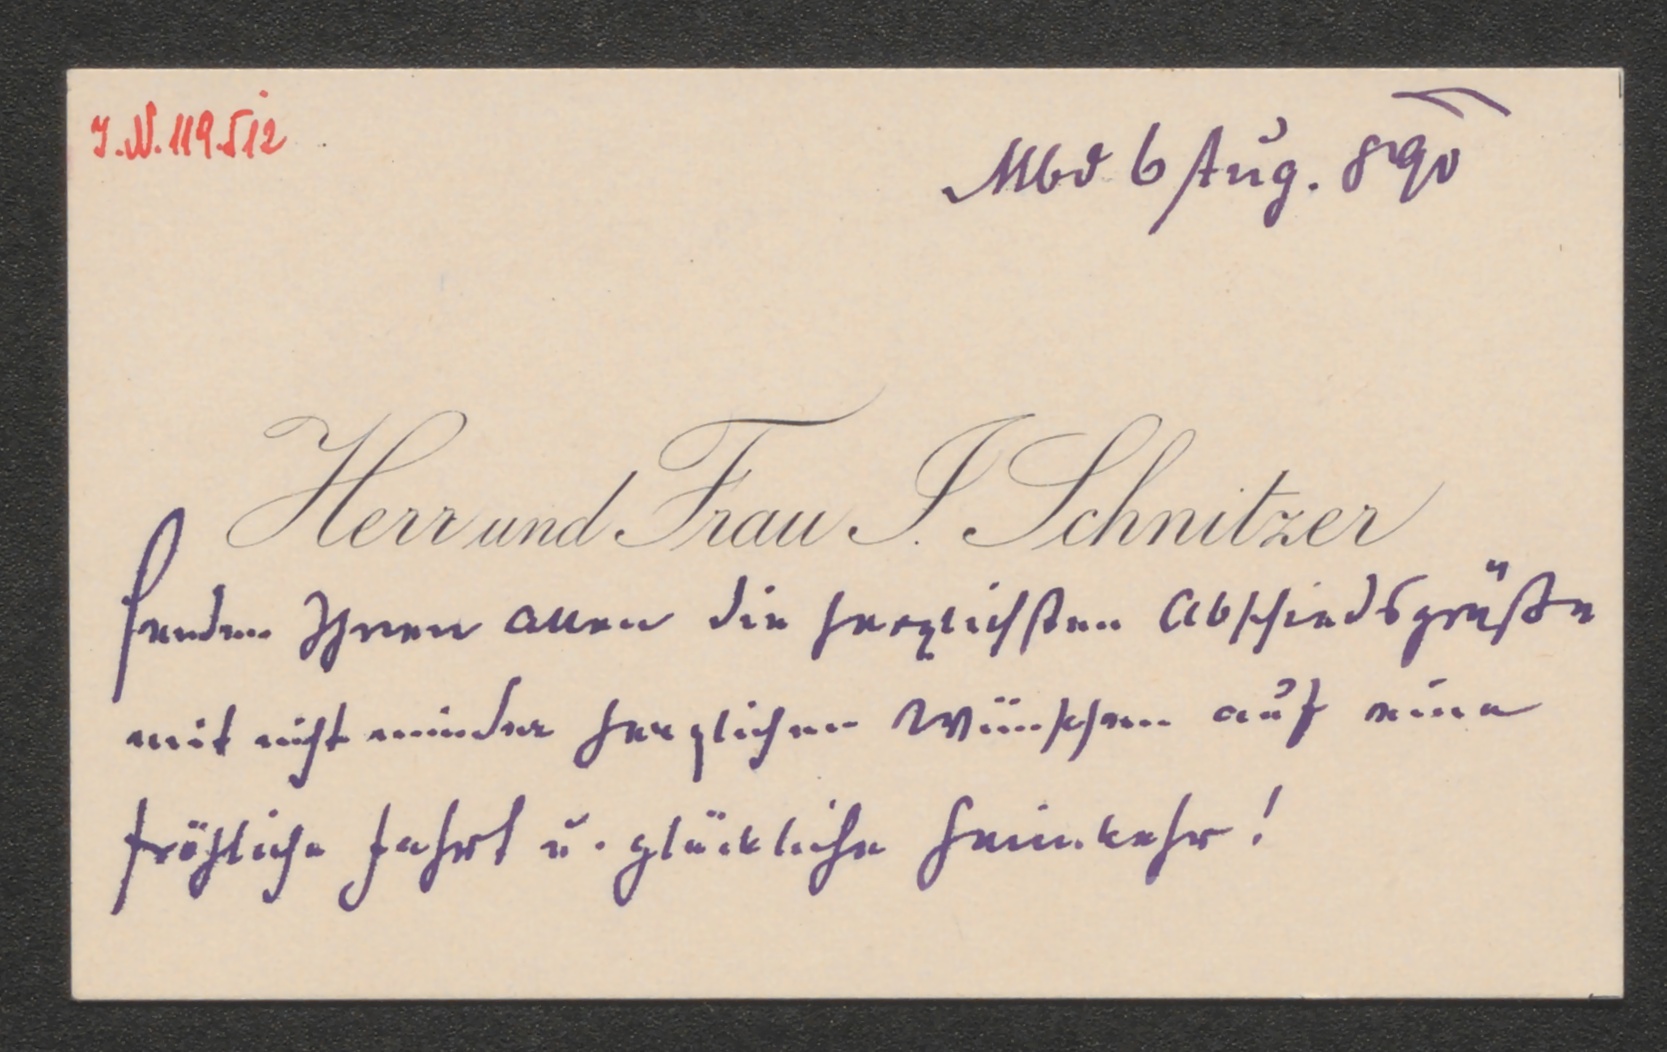 I.N. 119.512
Mbd 6 Aug. 890
Herr und Frau I. Schnitzer
senden Ihnen allen die herzlichsten Abschiedsgrüße
mit nicht minder herzlichen Wünschen auf eine
fröhliche Fahrt u. glückliche Heimkehr!